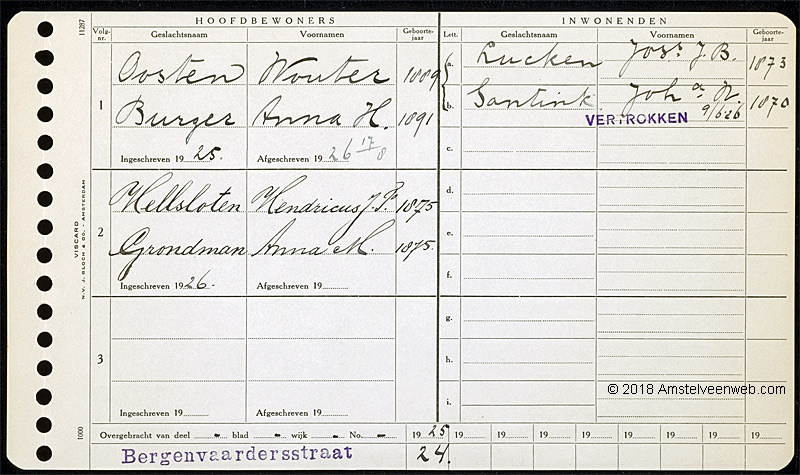 HOOFDBEWONERS
INWONENDEN
11287
Volg-nr.
Geslachtsnaam
Voornamen
Geboorte-jaar
Lett.
Geslachtsnaam
Voornamen
Geboorte-jaar
1
Oosten Wouter 1889
Burger Anna H. 1891
Ingeschreven 1925.
Afgeschreven 1926 17/8
a. Lucken Josⁿ J. B. 1873
b. Gantink Johª R. 1870
VERTROKKEN 9/6 26
c.
2
Hellsloten Hendricus J. P. 1875
Grondman Anna M. 1875.
Ingeschreven 1926.
Afgeschreven 19
d.
e.
f.
3
Ingeschreven 19
Afgeschreven 19
g.
h.
i.
© 2018 Amstelveenweb.com
VISCARD
N.V. J. BLOCH & CO. - AMSTERDAM
1000
Overgebracht van deel - blad - wijk - No. - 1925 19 19 19 19 19 19 19 19
Bergenvaardersstraat 24.